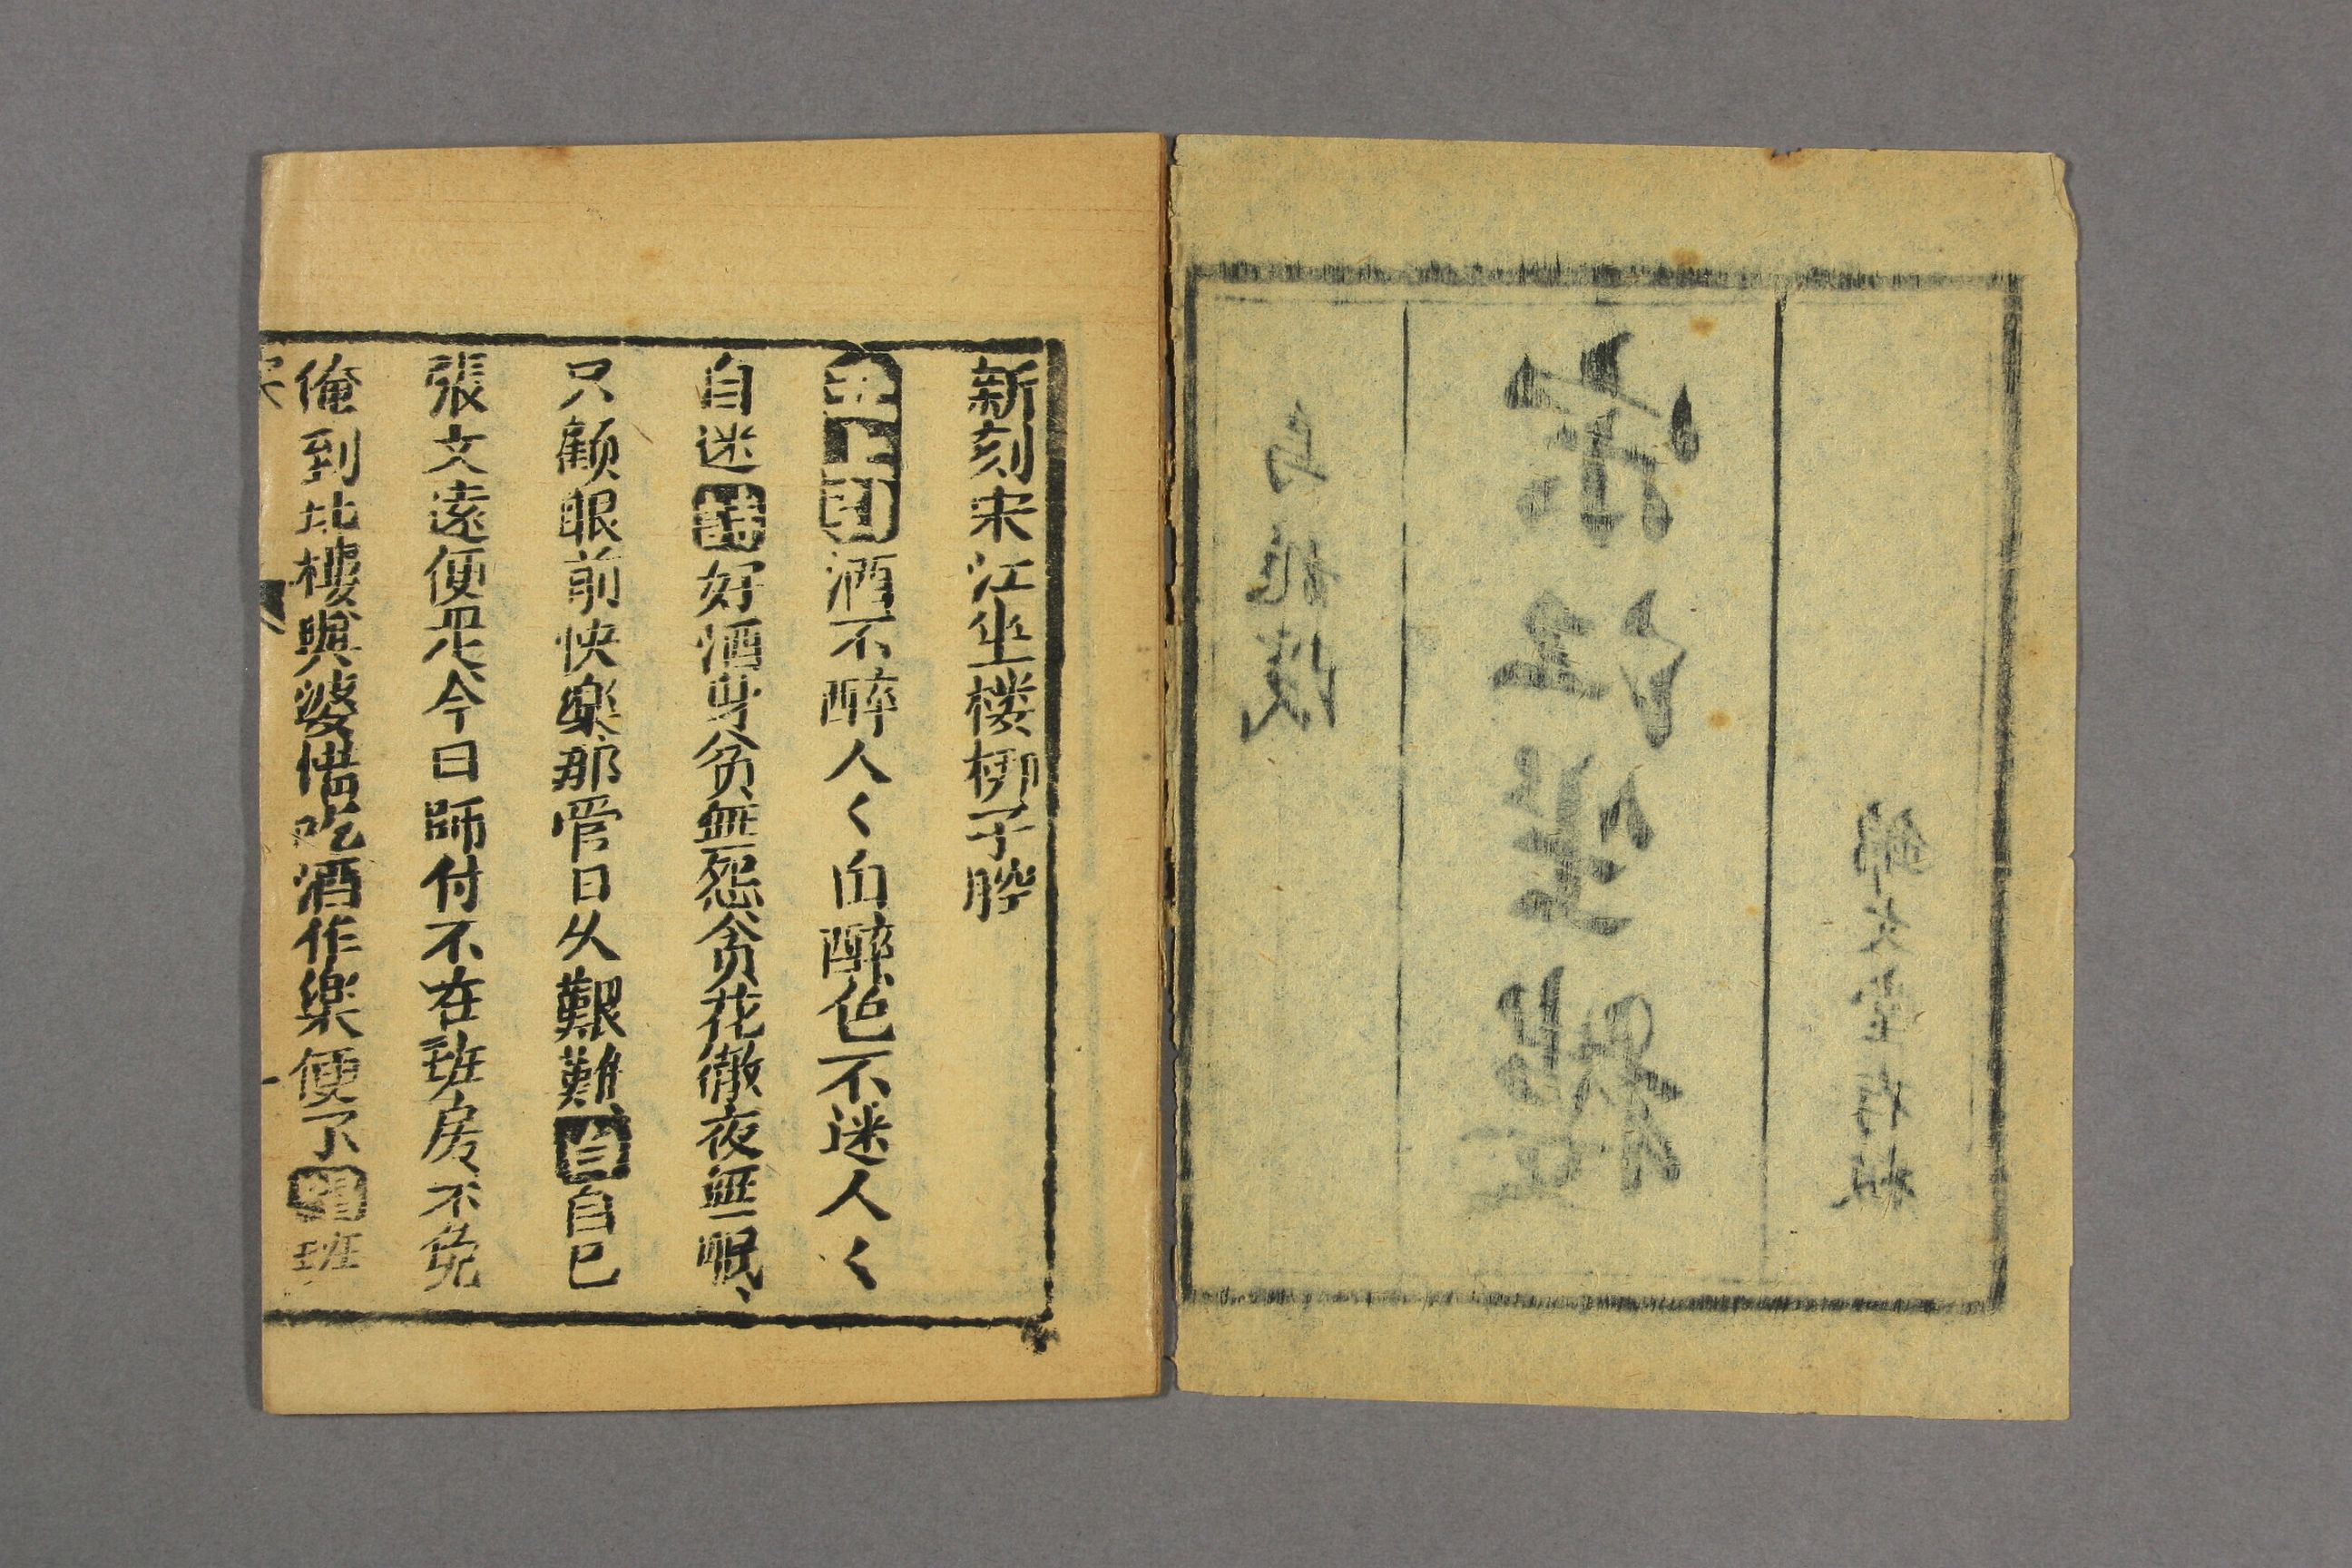 錦文堂存板
宋江坐樓
烏龍院
新刻宋江坐楼梆子腔
丑上引酒不醉人〱自醉色不迷人〱
自迷詩好酒身贫無怨贪花徹夜無眠、
只顧眼前快楽那管日久艱難白自己
張文遠便是今日師付不在班房、不免
俺到北樓與婆惜吃酒作楽便了
宋
一